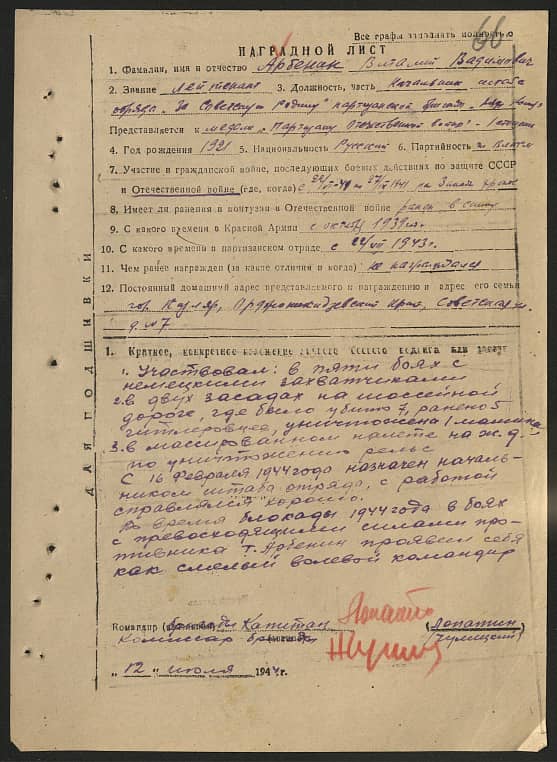 66
Все графы заполнять полностью
НАГРАДНОЙ ЛИСТ
1. Фамилия, имя и отчество Арбенин Виталий Вадимович
2. Звание лейтенант 3. Должность, часть Начальник штаба
отряда „За Советскую Родину" партизанской
Представляется к медали „Партизану Отечественной войны" I степени
4. Год рождения 1921 5. Национальность Русский 6. Партийность
7. Участие в гражданской войне, последующих боевых действиях по защите СССР
и Отечественной войне (где, когда) с на Запад. фронте
8. Имеет ли ранения и контузии в Отечественной войне ранен в спину
9. С какого времени в Красной Армии с октября 1939 г.
10. С какого времени в партизанском отряде с 22/VII 1943 г.
11. Чем ранее награжден (за какие отличия и когда) не награждался
12. Постоянный домашний адрес представляемого к награждению и адрес его семьи
гор. Кизляр, Орджоникидзевский край, Советская
д. №7
ДЛЯ ПОДШИВКИ
1. Краткое, конкретное изложение личного боевого подвига или заслуг
1. Участвовал: в пяти боях с
немецкими захватчиками
2. в двух засадах на шоссейной
дороге, где было убито 7, ранено 5
гитлеровцев, уничтожена 1 машина,
3. в массированном налете на ж.д.
по уничтожению рельс
С 16 февраля 1944 года назначен началь-
ником штаба отряда, с работой
справлялся хорошо.
Во время блокады 1944 года в боях
с превосходящими силами про-
тивника т. Арбенин проявил себя
как смелый волевой командир
Командир бригады Капитан Лопатин (Лопатин)
Комиссар бригады
„12" июля 1944 г.